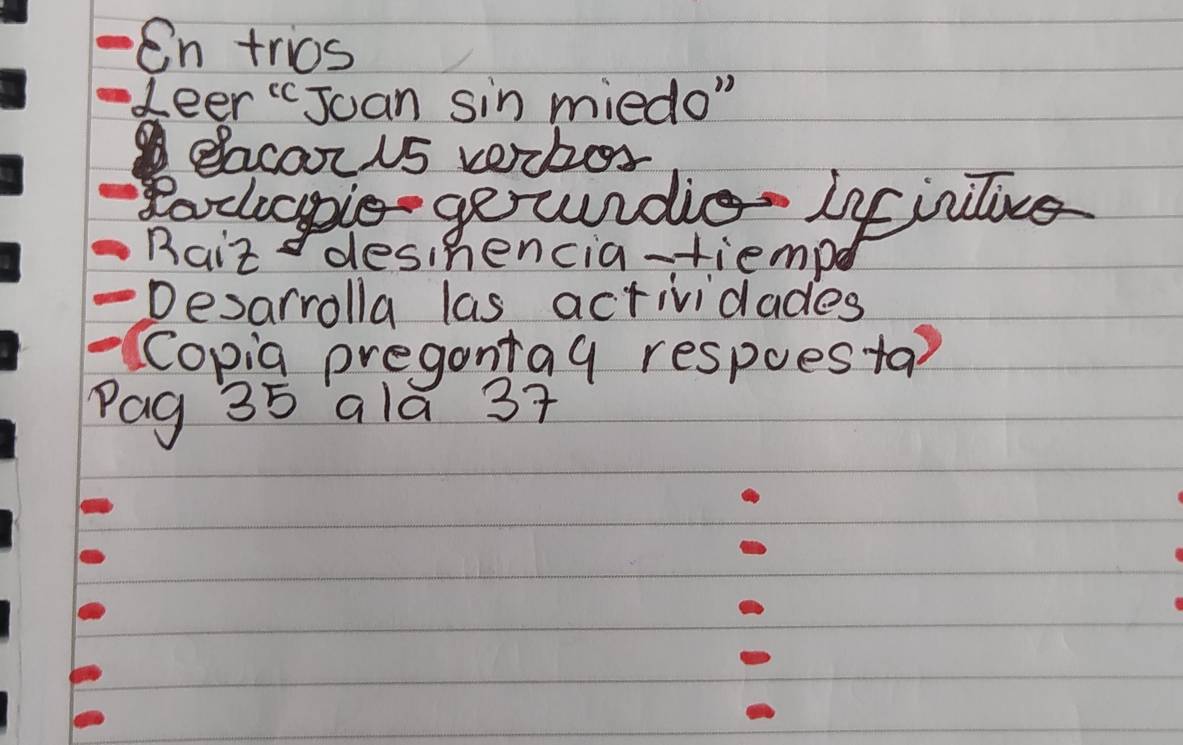 - En trios
- Leer "Juan sin miedo"
Sacar 15 verbos
- Participio - gerundio - infinitivo
- Raiz - desinencia - tiempo
- Desarrolla las actividades
- (Copia pregunta y respuesta)
Pag 35 a la 37